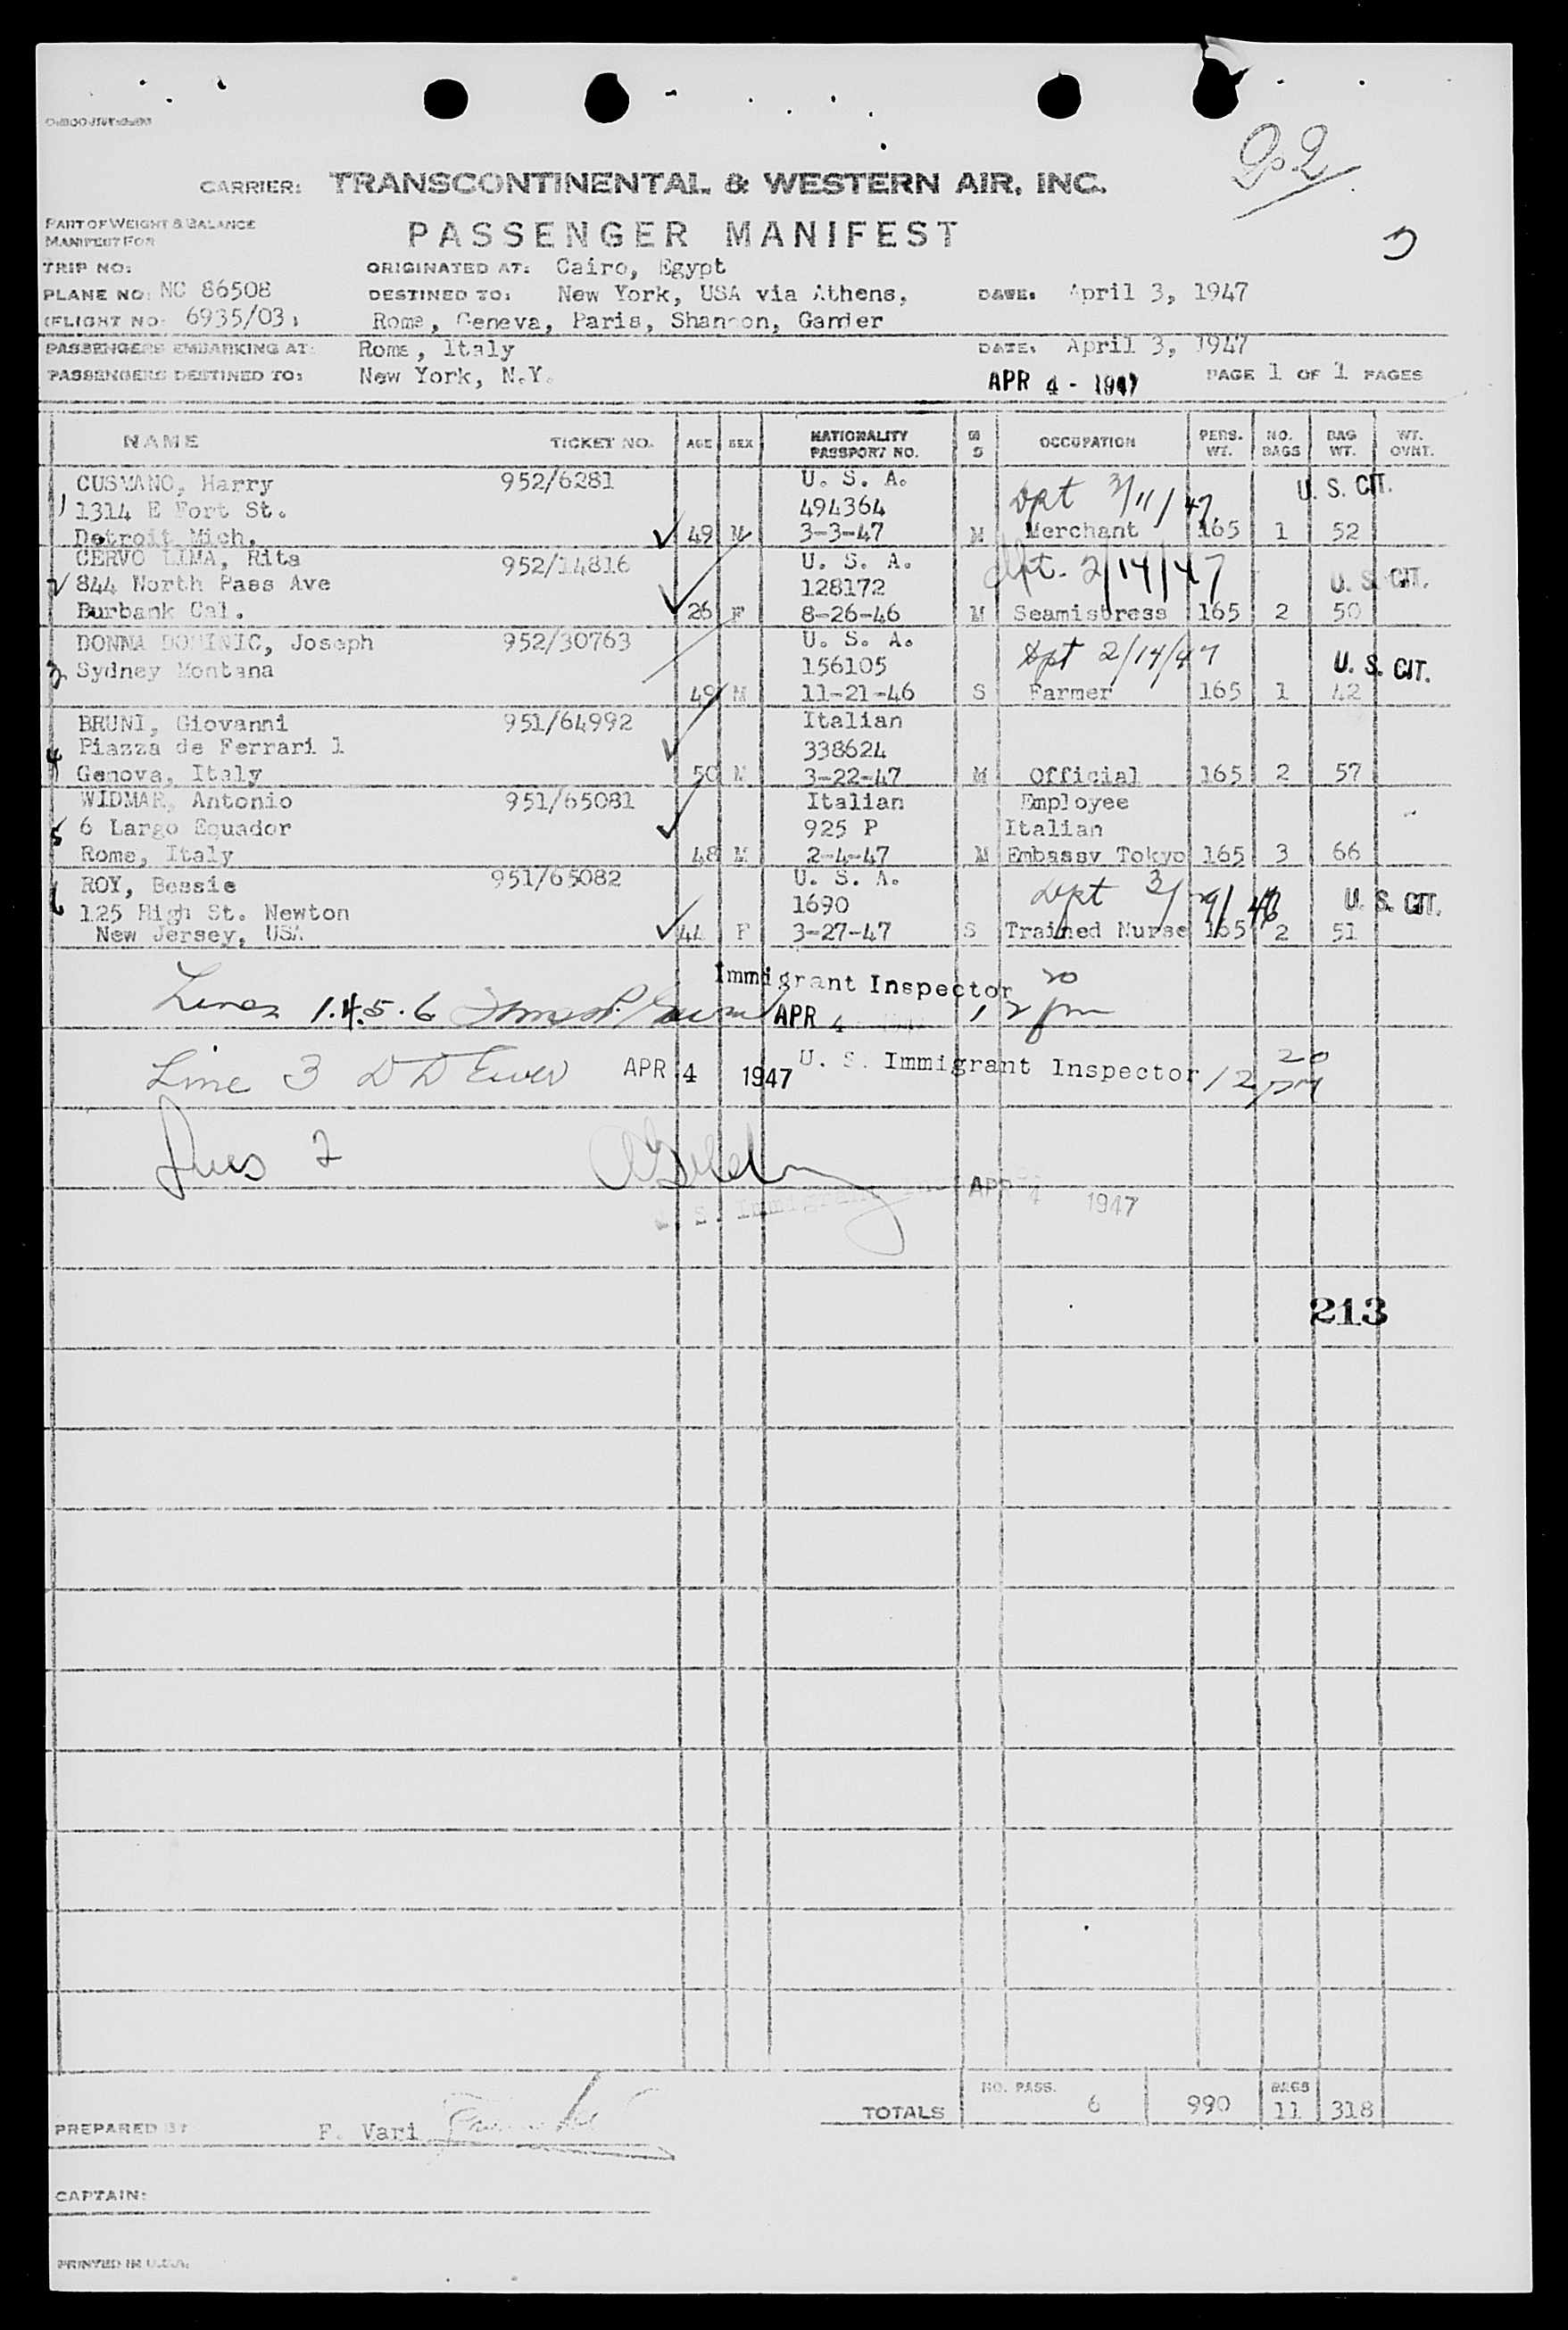 CARRIER: TRANSCONTINENTAL & WESTERN AIR, INC.
PART OF WEIGHT & BALANCE
MANIFEST FOR
PASSENGER MANIFEST
TRIP NO:
ORIGINATED AT: Cairo, Egypt
PLANE NO: NC 86508
DESTINED TO: New York, USA via Athens,
DATE: April 3, 1947
(FLIGHT NO: 6935/03)
Rome, Geneva, Paris, Shannon, Gander
PASSENGERS EMBARKING AT: Rome, Italy
DATE: April 3, 1947
PASSENGERS DESTINED TO: New York, N.Y.
APR 4 - 1947
PAGE 1 OF 1 PAGES
NAME TICKET NO. AGE SEX NATIONALITY PASSPORT NO. M S OCCUPATION PERS. WT. NO. BAGS BAG WT. WT. OVNT.
CUSMANO, Harry 952/6281 U. S. A. U. S. CIT.
1 1314 E Fort St. 494364 Dpt 3/11/47
Detroit Mich. 49 M 3-3-47 M Merchant 165 1 52
CERVO LIMA, Rita 952/14816 U. S. A. Dpt. 2/14/47
2 844 North Pass Ave 128172 U. S. CIT.
Burbank Cal. 26 F 8-26-46 M Seamistress 165 2 50
DONNA DOMINIC, Joseph 952/30763 U. S. A. Dpt 2/14/47
3 Sydney Montana 156105 U. S. CIT.
49 M 11-21-46 S Farmer 165 1 42
BRUNI, Giovanni 951/64992 Italian
4 Piazza de Ferrari 1 338624
Genova, Italy 50 M 3-22-47 M Official 165 2 57
WIDMAR, Antonio 951/65081 Italian Employee
5 6 Largo Equador 925 P Italian
Rome, Italy 48 M 2-4-47 M Embassy Tokyo 165 3 66
ROY, Bessie 951/65082 U. S. A. Dpt 3/
6 125 High St. Newton 1690 U. S. CIT.
New Jersey, USA 44 F 3-27-47 S Trained Nurse 165 2 51
Immigrant Inspector
Lines 1.4.5.6 APR 4 12 20 pm
Line 3 APR 4 1947 U. S. Immigrant Inspector 12 20 pm
2
U. S. Immigrant APR 4 1947
213
NO. PASS. BAGS
TOTALS 6 990 11 318
PREPARED BY F. Vari
CAPTAIN:
PRINTED IN U.S.A.